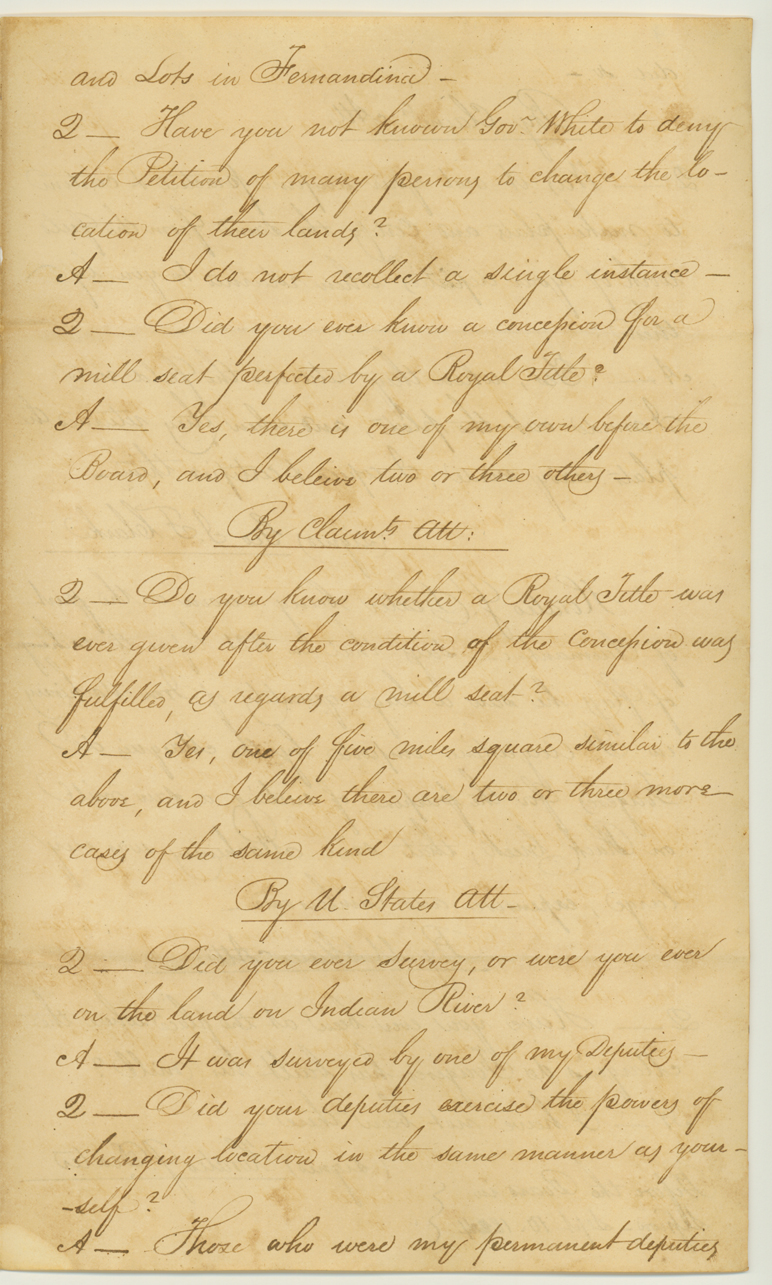 and Lots in Fernandina –
Q — Have you not known Govr. White to deny
the Petition of many persons to change the lo-
cation of their lands?
A — I do not recollect a single instance —
Q — Did you ever know a concession for a
mill seat perfected by a Royal Title?
A — Yes, there is one of my own before the
Board, and I beleive two or three others –
By Claimts. Att:
Q — Do you know whether a Royal Title was
ever given after the condition of the Concession was
fulfilled, as regards a mill seat?
A — Yes, one of five miles square similar to the
above, and I beleive there are two or three more —
cases of the same kind
By U. States Att –
Q — Did you ever survey, or were you ever
on the land on Indian River?
A — It was surveyed by one of my Deputies —
Q — Did your deputies exercise the powers of
changing location in the same manner as your-
-self?
A — Those who were my permanent deputies